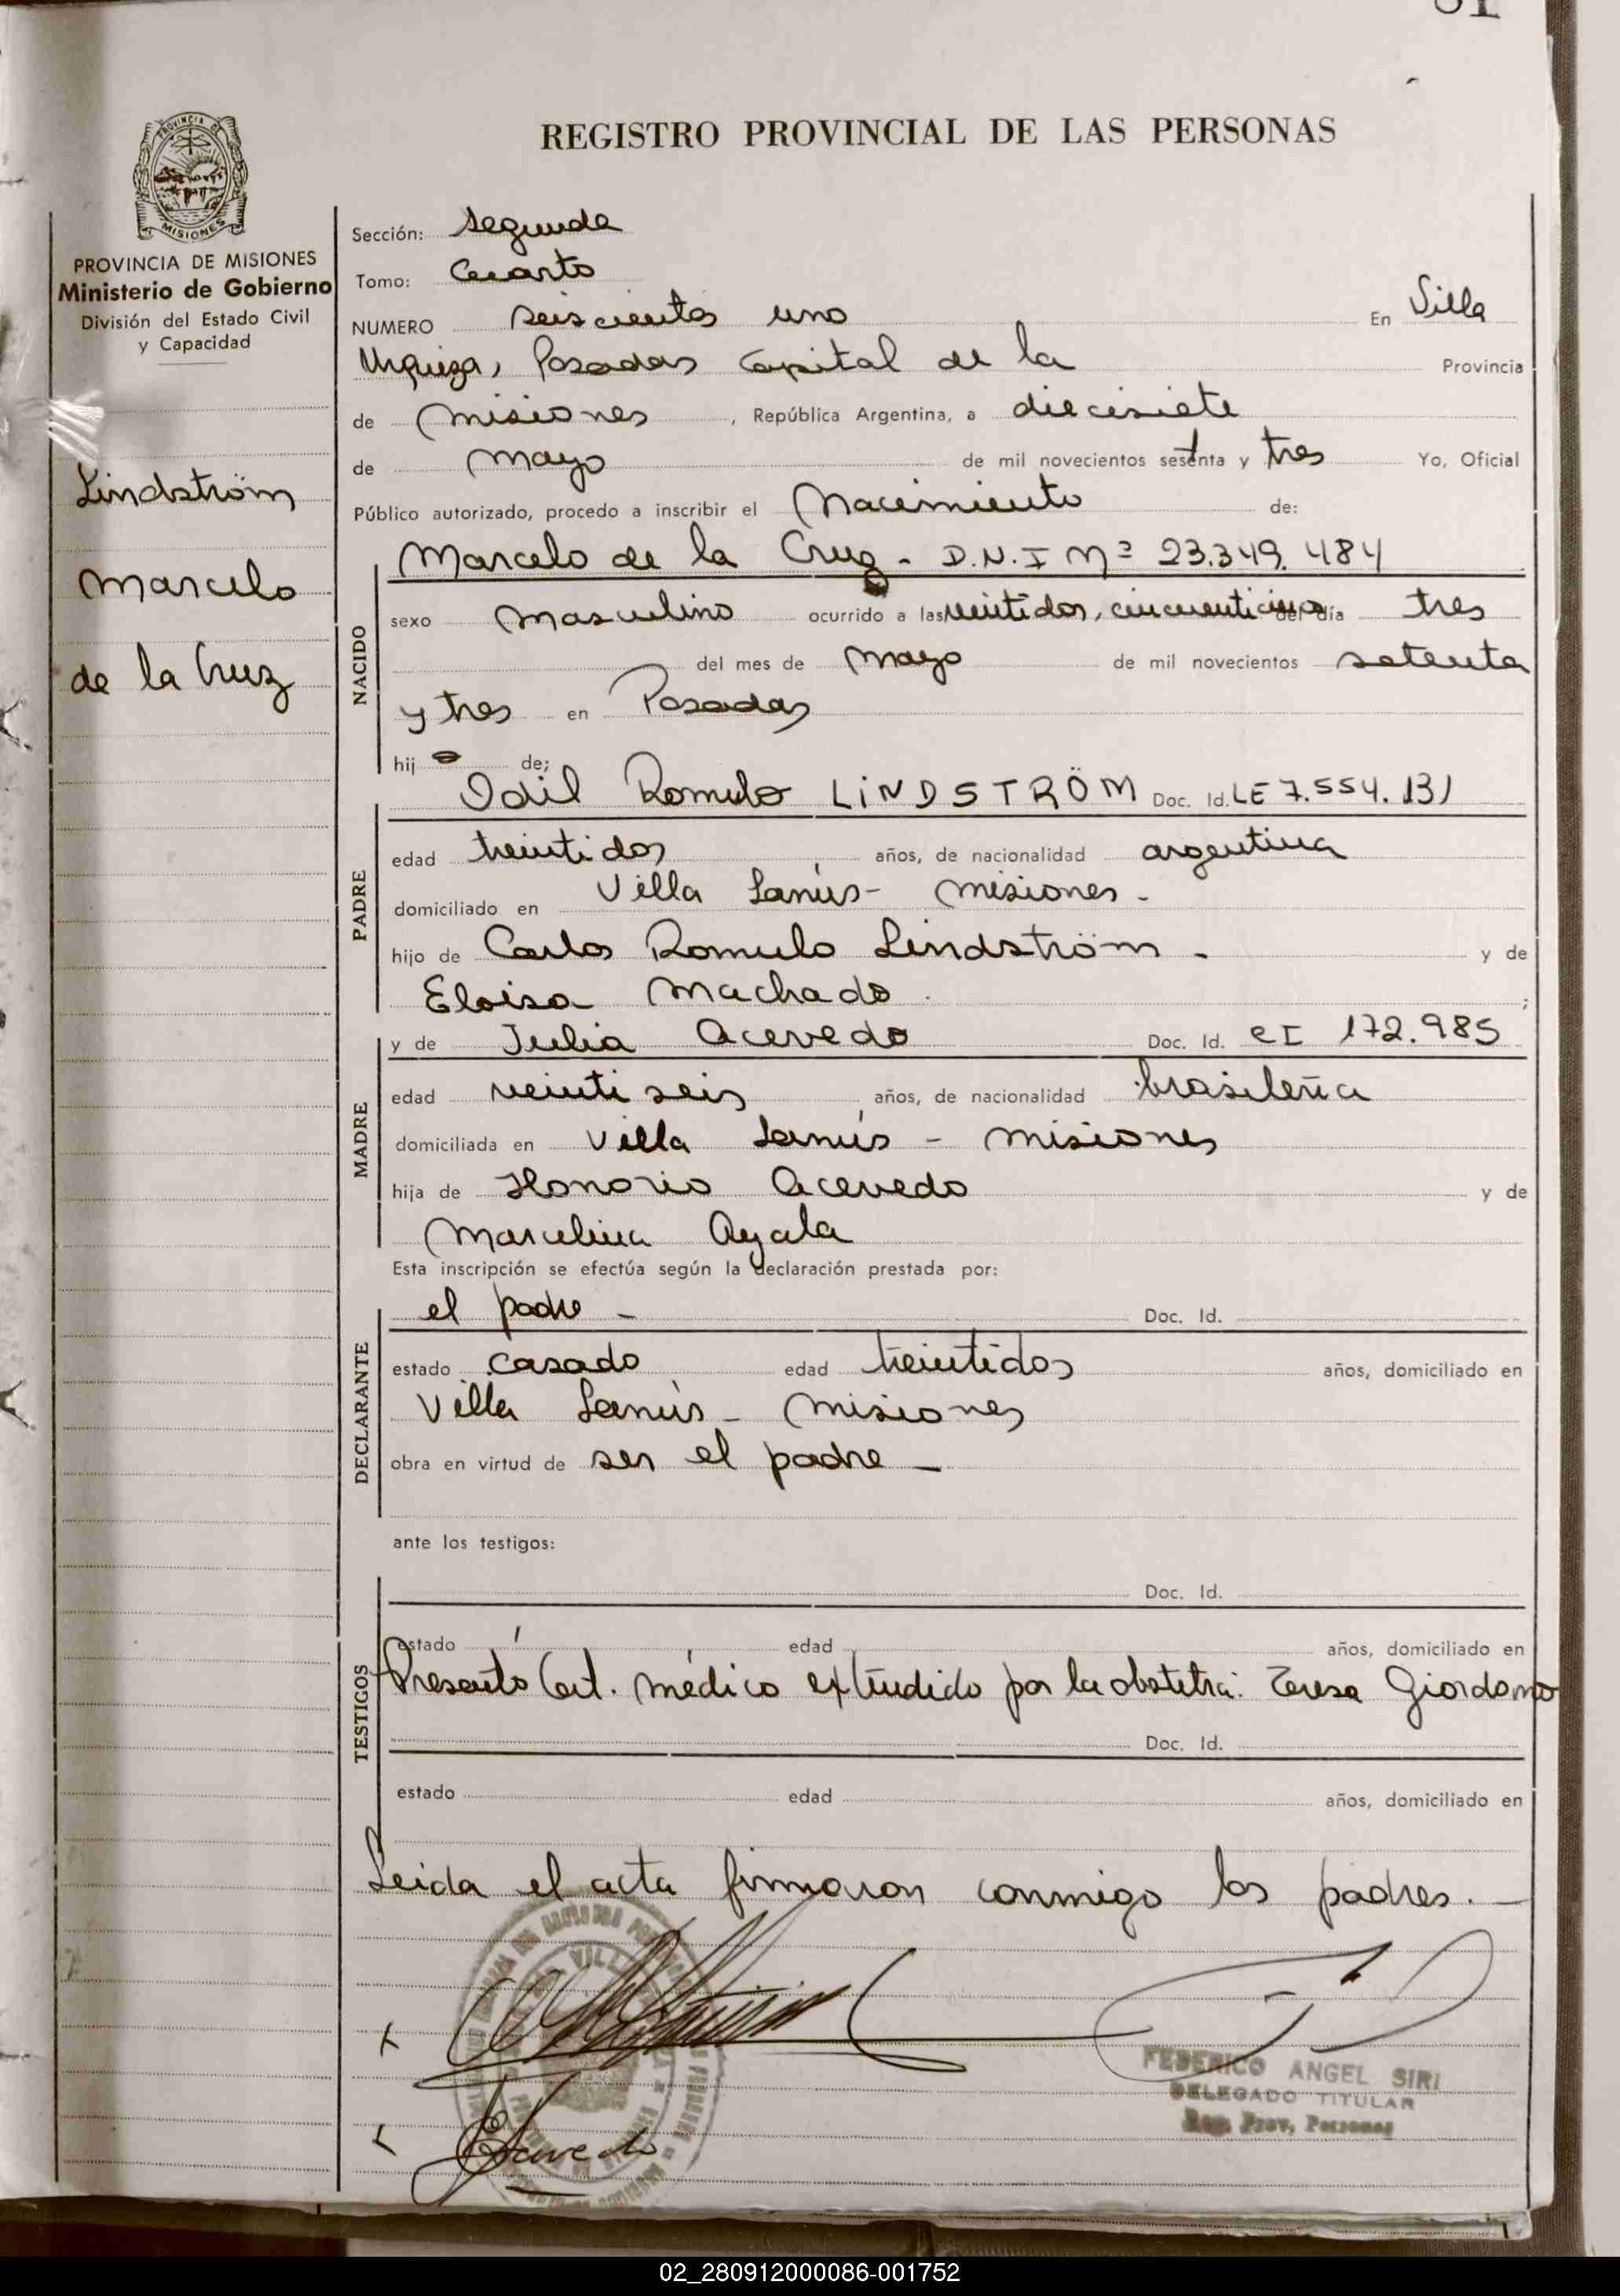 REGISTRO PROVINCIAL DE LAS PERSONAS
PROVINCIA DE
MISIONES
PROVINCIA DE MISIONES
Ministerio de Gobierno
División del Estado Civil
y Capacidad
Lindström
Marcelo
de la Cruz
Sección: Segunda
Tomo: Cuarto
NUMERO seiscientos uno En Villa
Urquiza, Posadas Capital de la Provincia
de Misiones, República Argentina, a diecisiete
de Mayo de mil novecientos setenta y tres Yo, Oficial
Público autorizado, procedo a inscribir el Nacimiento de:
NACIDO
Marcelo de la Cruz - D.N.I Nº 23.349.484
sexo Masculino ocurrido a las veintidos, cincuenticinco del día tres
del mes de Mayo de mil novecientos setenta
y tres en Posadas
hijo de;
PADRE
Odil Romulo LINDSTRÖM Doc. Id. LE 7.554.131
edad treintidos años, de nacionalidad argentina
domiciliado en Villa Lanús - Misiones -
hijo de Carlos Romulo Lindström - y de
Eloisa Machado ;
MADRE
y de Julia Acevedo Doc. Id. CI 172.985
edad veintiseis años, de nacionalidad brasileña
domiciliada en Villa Lanús - Misiones
hija de Honorio Acevedo y de
Marcelina Ayala
Esta inscripción se efectúa según la declaración prestada por:
DECLARANTE
el padre - Doc. Id.
estado casado edad treintidos años, domiciliado en
Villa Lanús - Misiones
obra en virtud de ser el padre -
ante los testigos:
TESTIGOS
Doc. Id.
estado edad años, domiciliado en
Presentó Cert. médico extendido por la obstetra: Teresa Giordano
Doc. Id.
estado edad años, domiciliado en
Leida el acta firmaron conmigo los padres. -
FEDERICO ANGEL SIRI
DELEGADO TITULAR
Reg. Prov. Personas
Acevedo
02_280912000086-001752